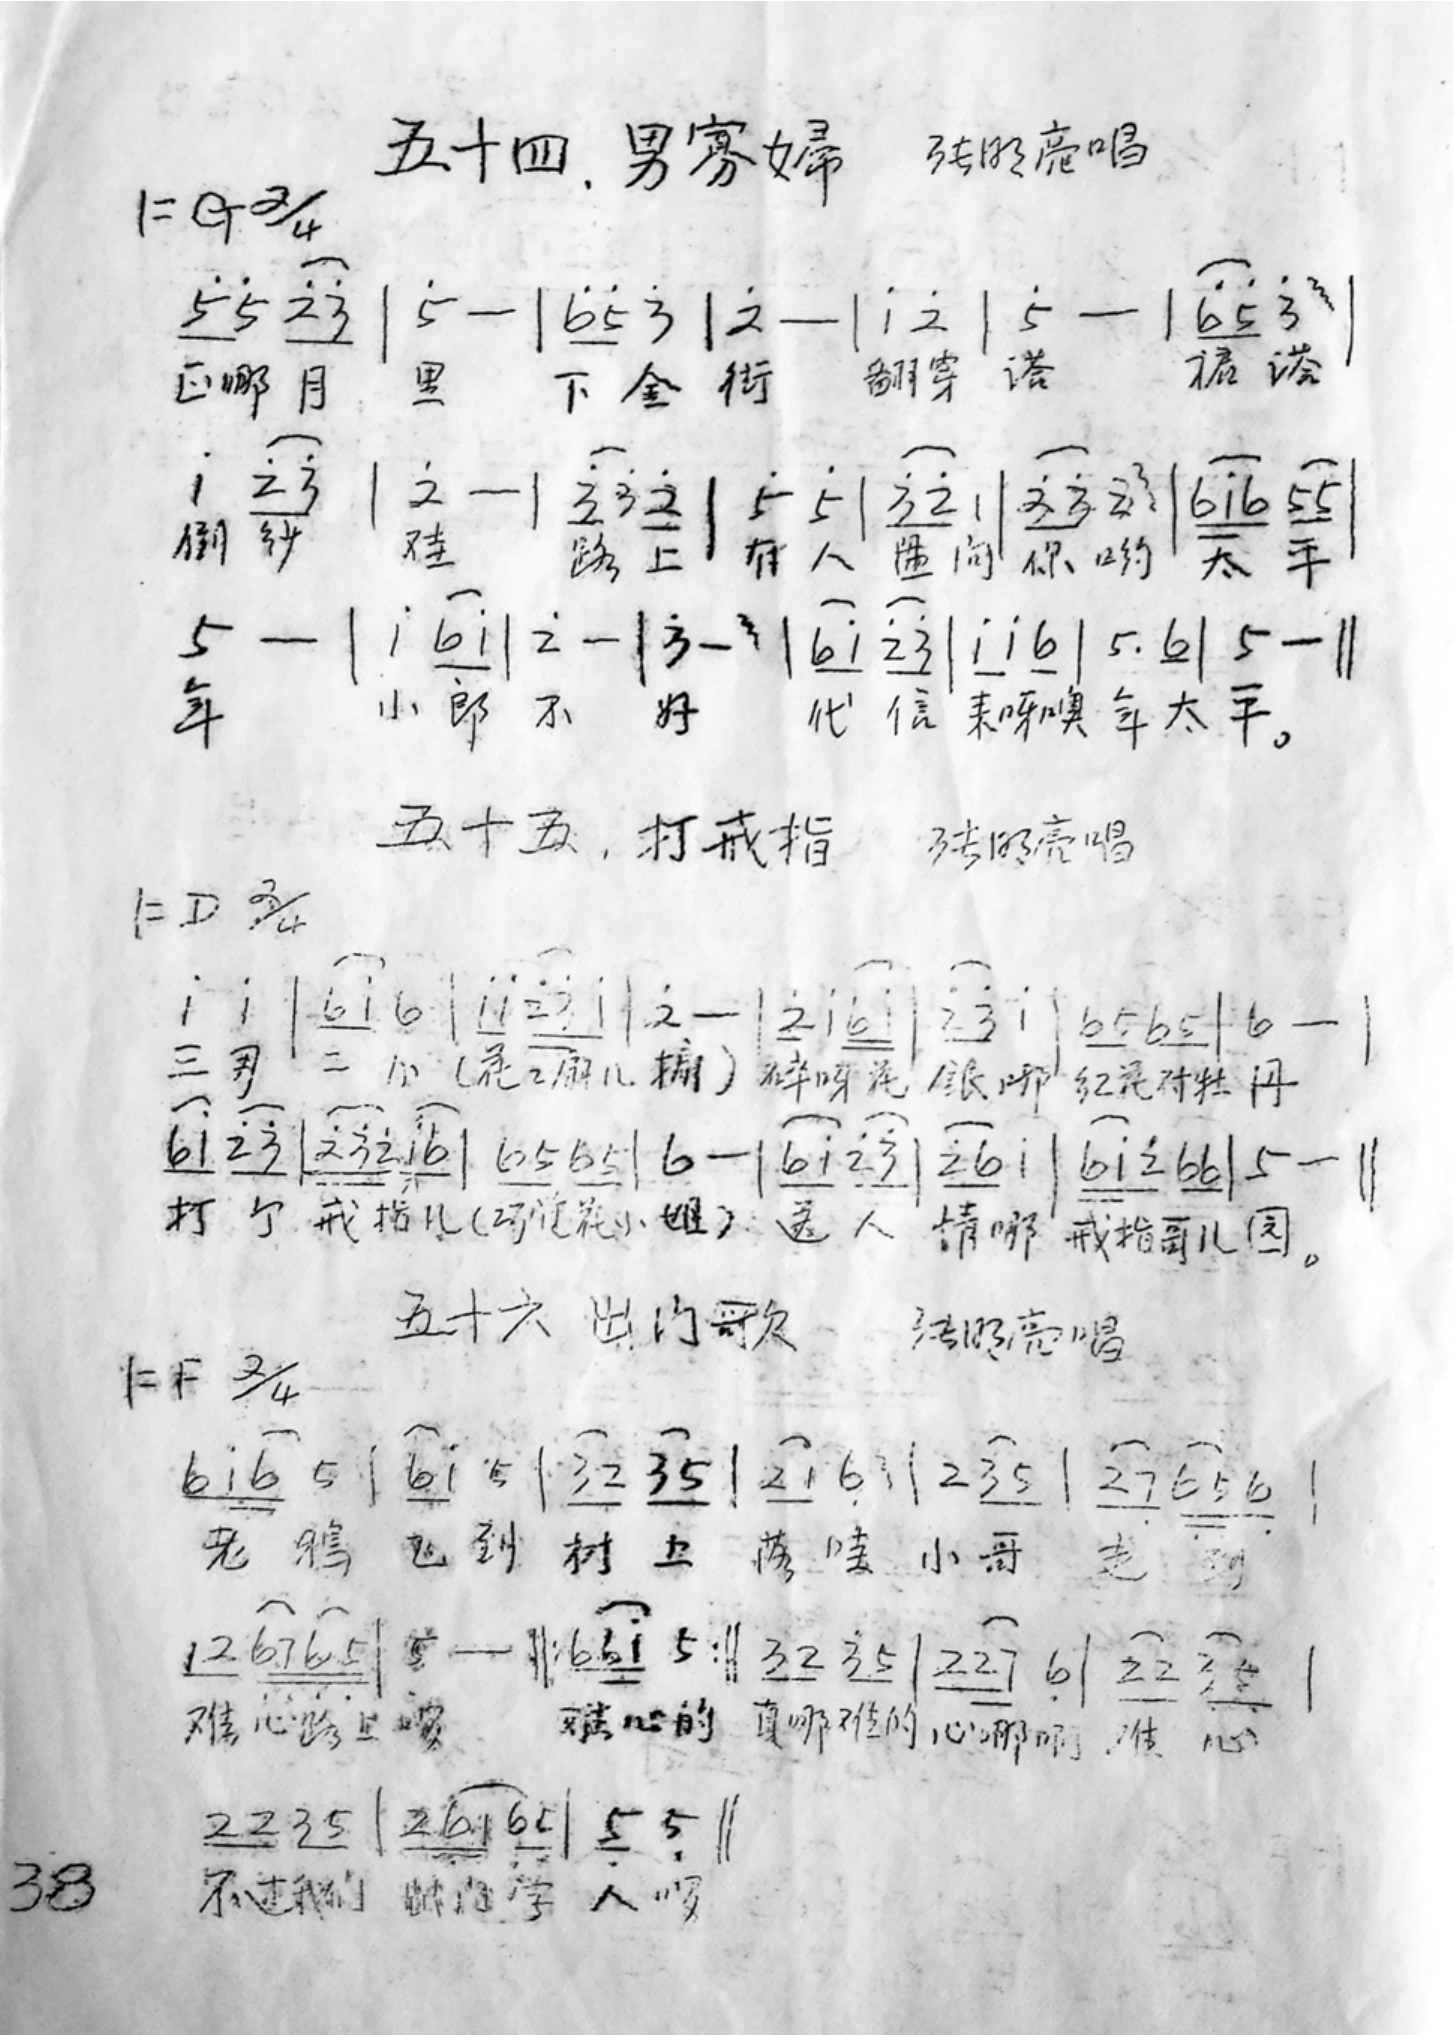 五十四.男寡婦 张明亮唱
1=G 2/4
5̇5̇ 2̇3̇ | 5̇ — | 6̇5̇ 3̇ | 2̇ — | 1̇ 2̇ | 5̇ — | 6̇5̇ 3̇ |
正哪月 里 下金街 翻穿 褡 裙褡
1̇ 2̇3̇ | 2̇ — | 3̇3̇2̇ | 5̇ 5̇ | 3̇2̇ 1 | 2̇3̇ 2̇ | 61̇6 55 |
倒纱 路上 有人 问 你哟 太平
5 — | 1̇ 61̇ | 2̇ — | 3̇ — | 61̇ 2̇3̇ | 1̇ 1̇ 6 | 5. 6 | 5 — ‖
年 小郎不 好 代信来呀噢年太平。
五十五.打戒指 张明亮唱
1=D 2/4
1̇ 1̇ | 61̇ 6 | 1̇1̇2̇3̇1̇ | 2̇ — | 2̇1̇61̇ | 2̇3̇ 1̇ | 6565 | 6 — |
三男二 (花 儿 ) 碎呀花 银哪 红花对牡丹
61̇ 2̇3̇ | 2̇3̇2̇1̇6 | 6565 | 6 — | 61̇ 2̇3̇ | 2̇6 1̇ | 61̇2̇ 66 | 5 — ‖
打个 戒指儿( 花小姐) 送人 情哪 戒指哥儿园。
五十六 出门歌 张明亮唱
1=F 2/4
61̇6 5 | 61̇ 5 | 32 35 | 21 6̣ | 2 35 | 27̣ 6̣5̣6̣ |
老鸦 飞到 树上 落哇 小哥 走到
12 6̣7̣6̣5̣ | 5̣ — ‖: 661̇ 5 :‖ 32 35 | 227̣ 6̣ | 22 35 |
难心路上 难心的 真哪难的 心哪啊 难心
22 35 | 26̣16̣5̣ | 5̣ 5̣ ‖
不过我们 出门 人啰
38